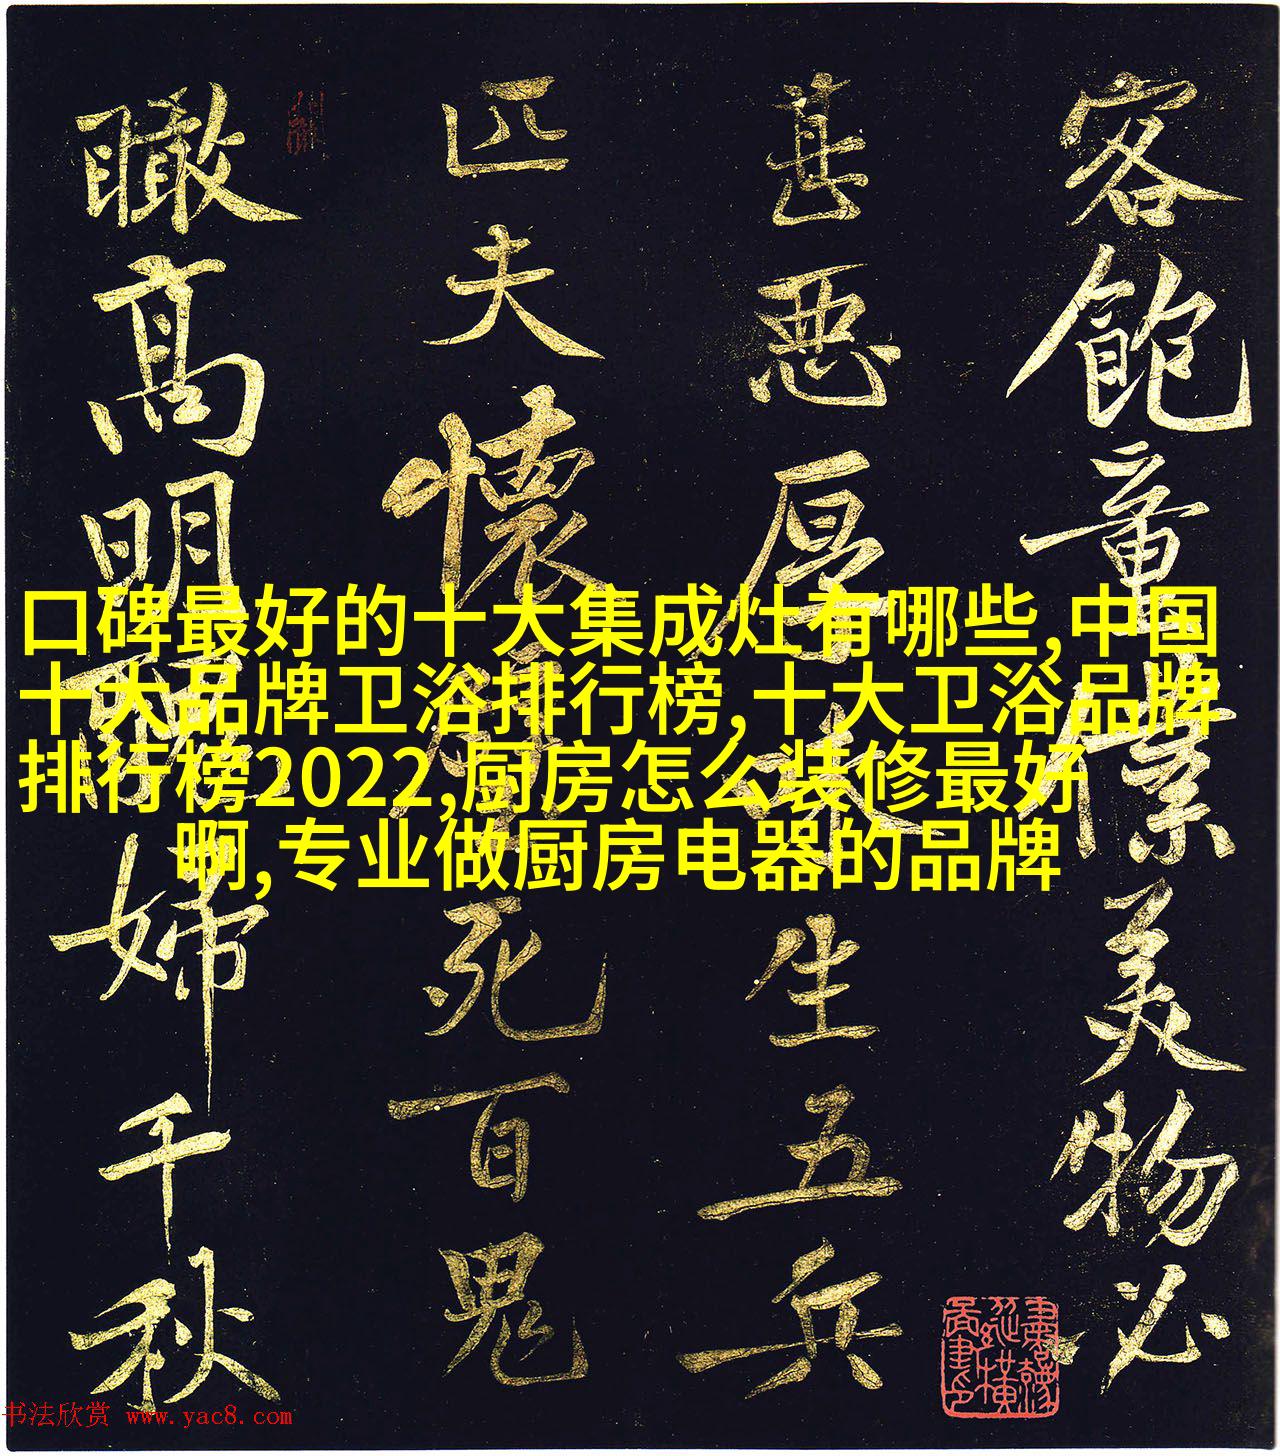 客飽童僕美物必
甚惡厚生五兵
匹夫懷死百鬼
瞰高明婦千秋
口碑最好的十大集成灶有哪些,中国
十大品牌卫浴排行榜,十大卫浴品牌
排行榜2022,厨房怎么装修最好
啊,专业做厨房电器的品牌
书法欣赏 www.yac8.com